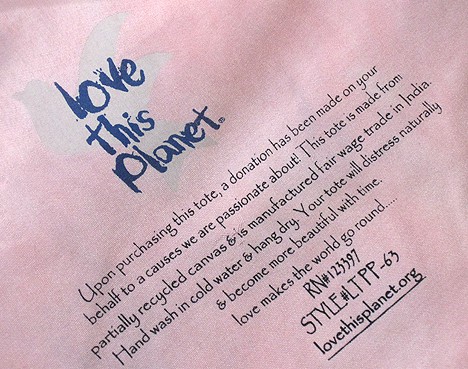 love
this
planet®
Upon purchasing this tote, a donation has been made on your
behalf to a causes we are passionate about! This tote is made from
partially recycled canvas & is manufactured fair wage trade in India.
Hand wash in cold water & hang dry. Your tote will distress naturally
& become more beautiful with time.
love makes the world go round.....
RN#123397
STYLE#LTPP-63
lovethisplanet.org